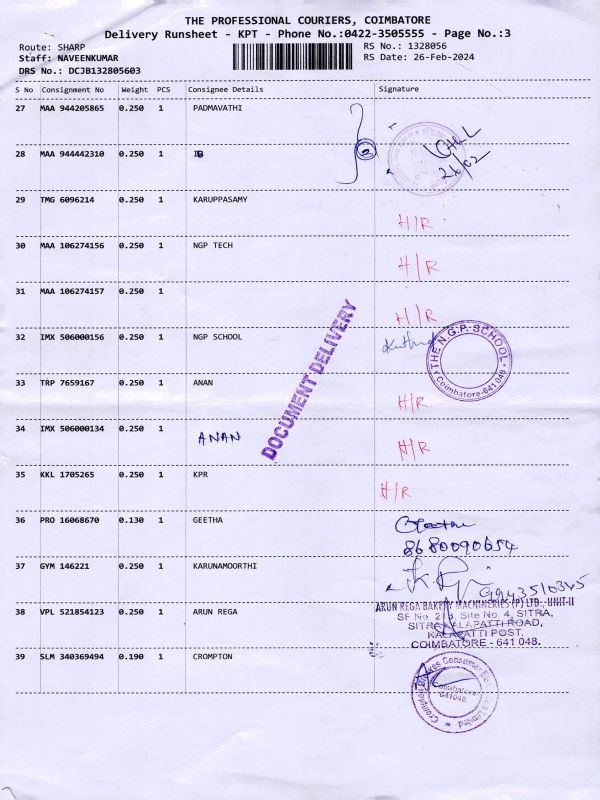 THE PROFESSIONAL COURIERS, COIMBATORE
Delivery Runsheet - KPT - Phone No.:0422-3505555 - Page No.:3
Route: SHARP
RS No.: 1328056
Staff: NAVEENKUMAR
RS Date: 26-Feb-2024
DRS No.: DCJB132805603
S No Consignment No Weight PCS Consignee Details Signature
27 MAA 944205865 0.250 1 PADMAVATHI
28 MAA 944442310 0.250 1
26/02
29 TMG 6096214 0.250 1 KARUPPASAMY
H/R
30 MAA 106274156 0.250 1 NGP TECH
H/R
31 MAA 106274157 0.250 1
H/R
32 IMX 506000156 0.250 1 NGP SCHOOL
THE N.G.P. SCHOOL
Coimbatore-641 048
DOCUMENT DELIVERY
33 TRP 7659167 0.250 1 ANAN
H/R
34 IMX 506000134 0.250 1 ANAN
H/R
35 KKL 1705265 0.250 1 KPR
H/R
36 PRO 16068670 0.130 1 GEETHA
Geetha
8680090654
37 GYM 146221 0.250 1 KARUNAMOORTHI
9943510345
38 VPL 521854123 0.250 1 ARUN REGA
ARUN REGA BAKERY MACHINERIES (P) LTD., UNIT-II
SF No. 213, Site No. 4, SITRA,
SITRA KALAPATTI ROAD,
KALAPATTI POST,
COIMBATORE - 641 048.
39 SLM 340369494 0.190 1 CROMPTON
Coimbatore
641048.